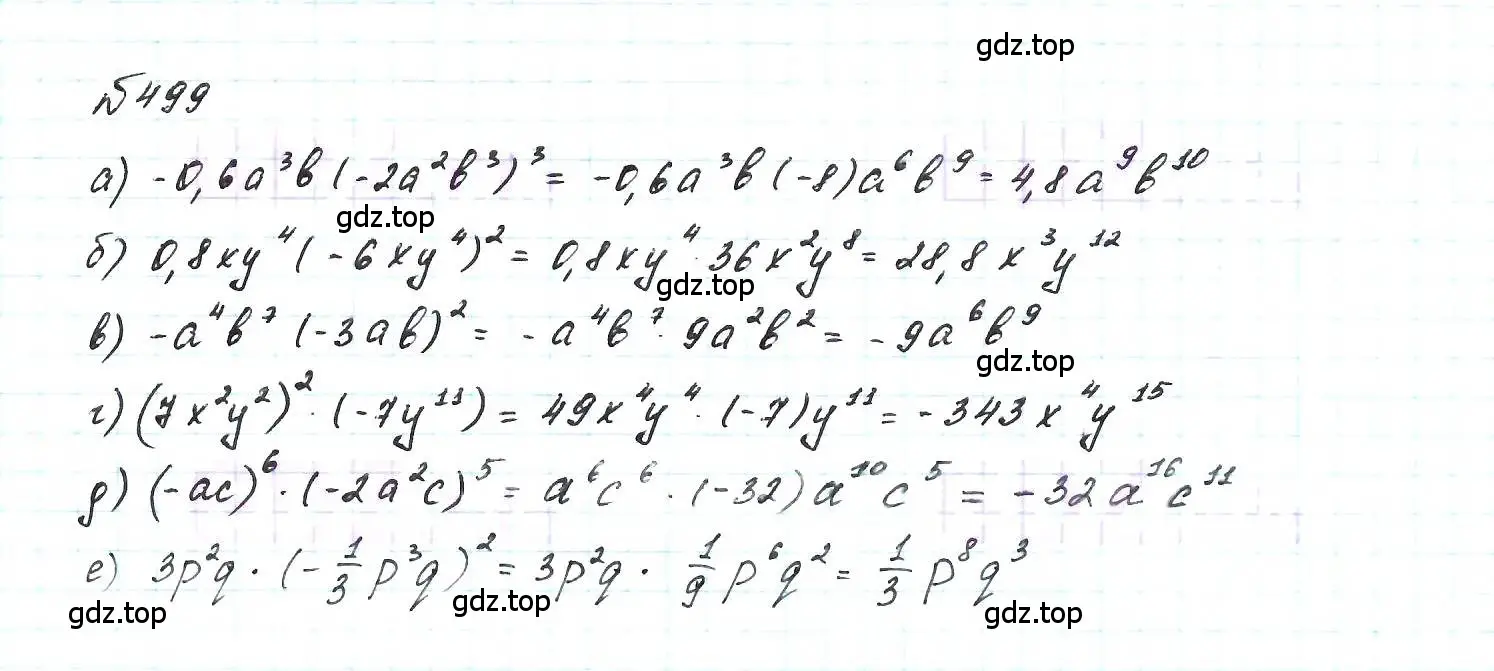 gdz.top
№499
а) -0,6a³b(-2a²b³)³ = -0,6a³b(-8)a⁶b⁹ = 4,8a⁹b¹⁰
gdz.top
б) 0,8xy⁴(-6xy⁴)² = 0,8xy⁴·36x²y⁸ = 28,8x³y¹²
gdz.top
в) -a⁴b⁷(-3ab)² = -a⁴b⁷·9a²b² = -9a⁶b⁹
gdz.top
г) (7x²y²)²·(-7y¹¹) = 49x⁴y⁴·(-7)y¹¹ = -343x⁴y¹⁵
д) (-ac)⁶·(-2a²c)⁵ = a⁶c⁶·(-32)a¹⁰c⁵ = -32a¹⁶c¹¹
е) 3p²q·(-1/3p³q)² = 3p²q·1/9p⁶q² = 1/3p⁸q³
gdz.top gdz.top gdz.top